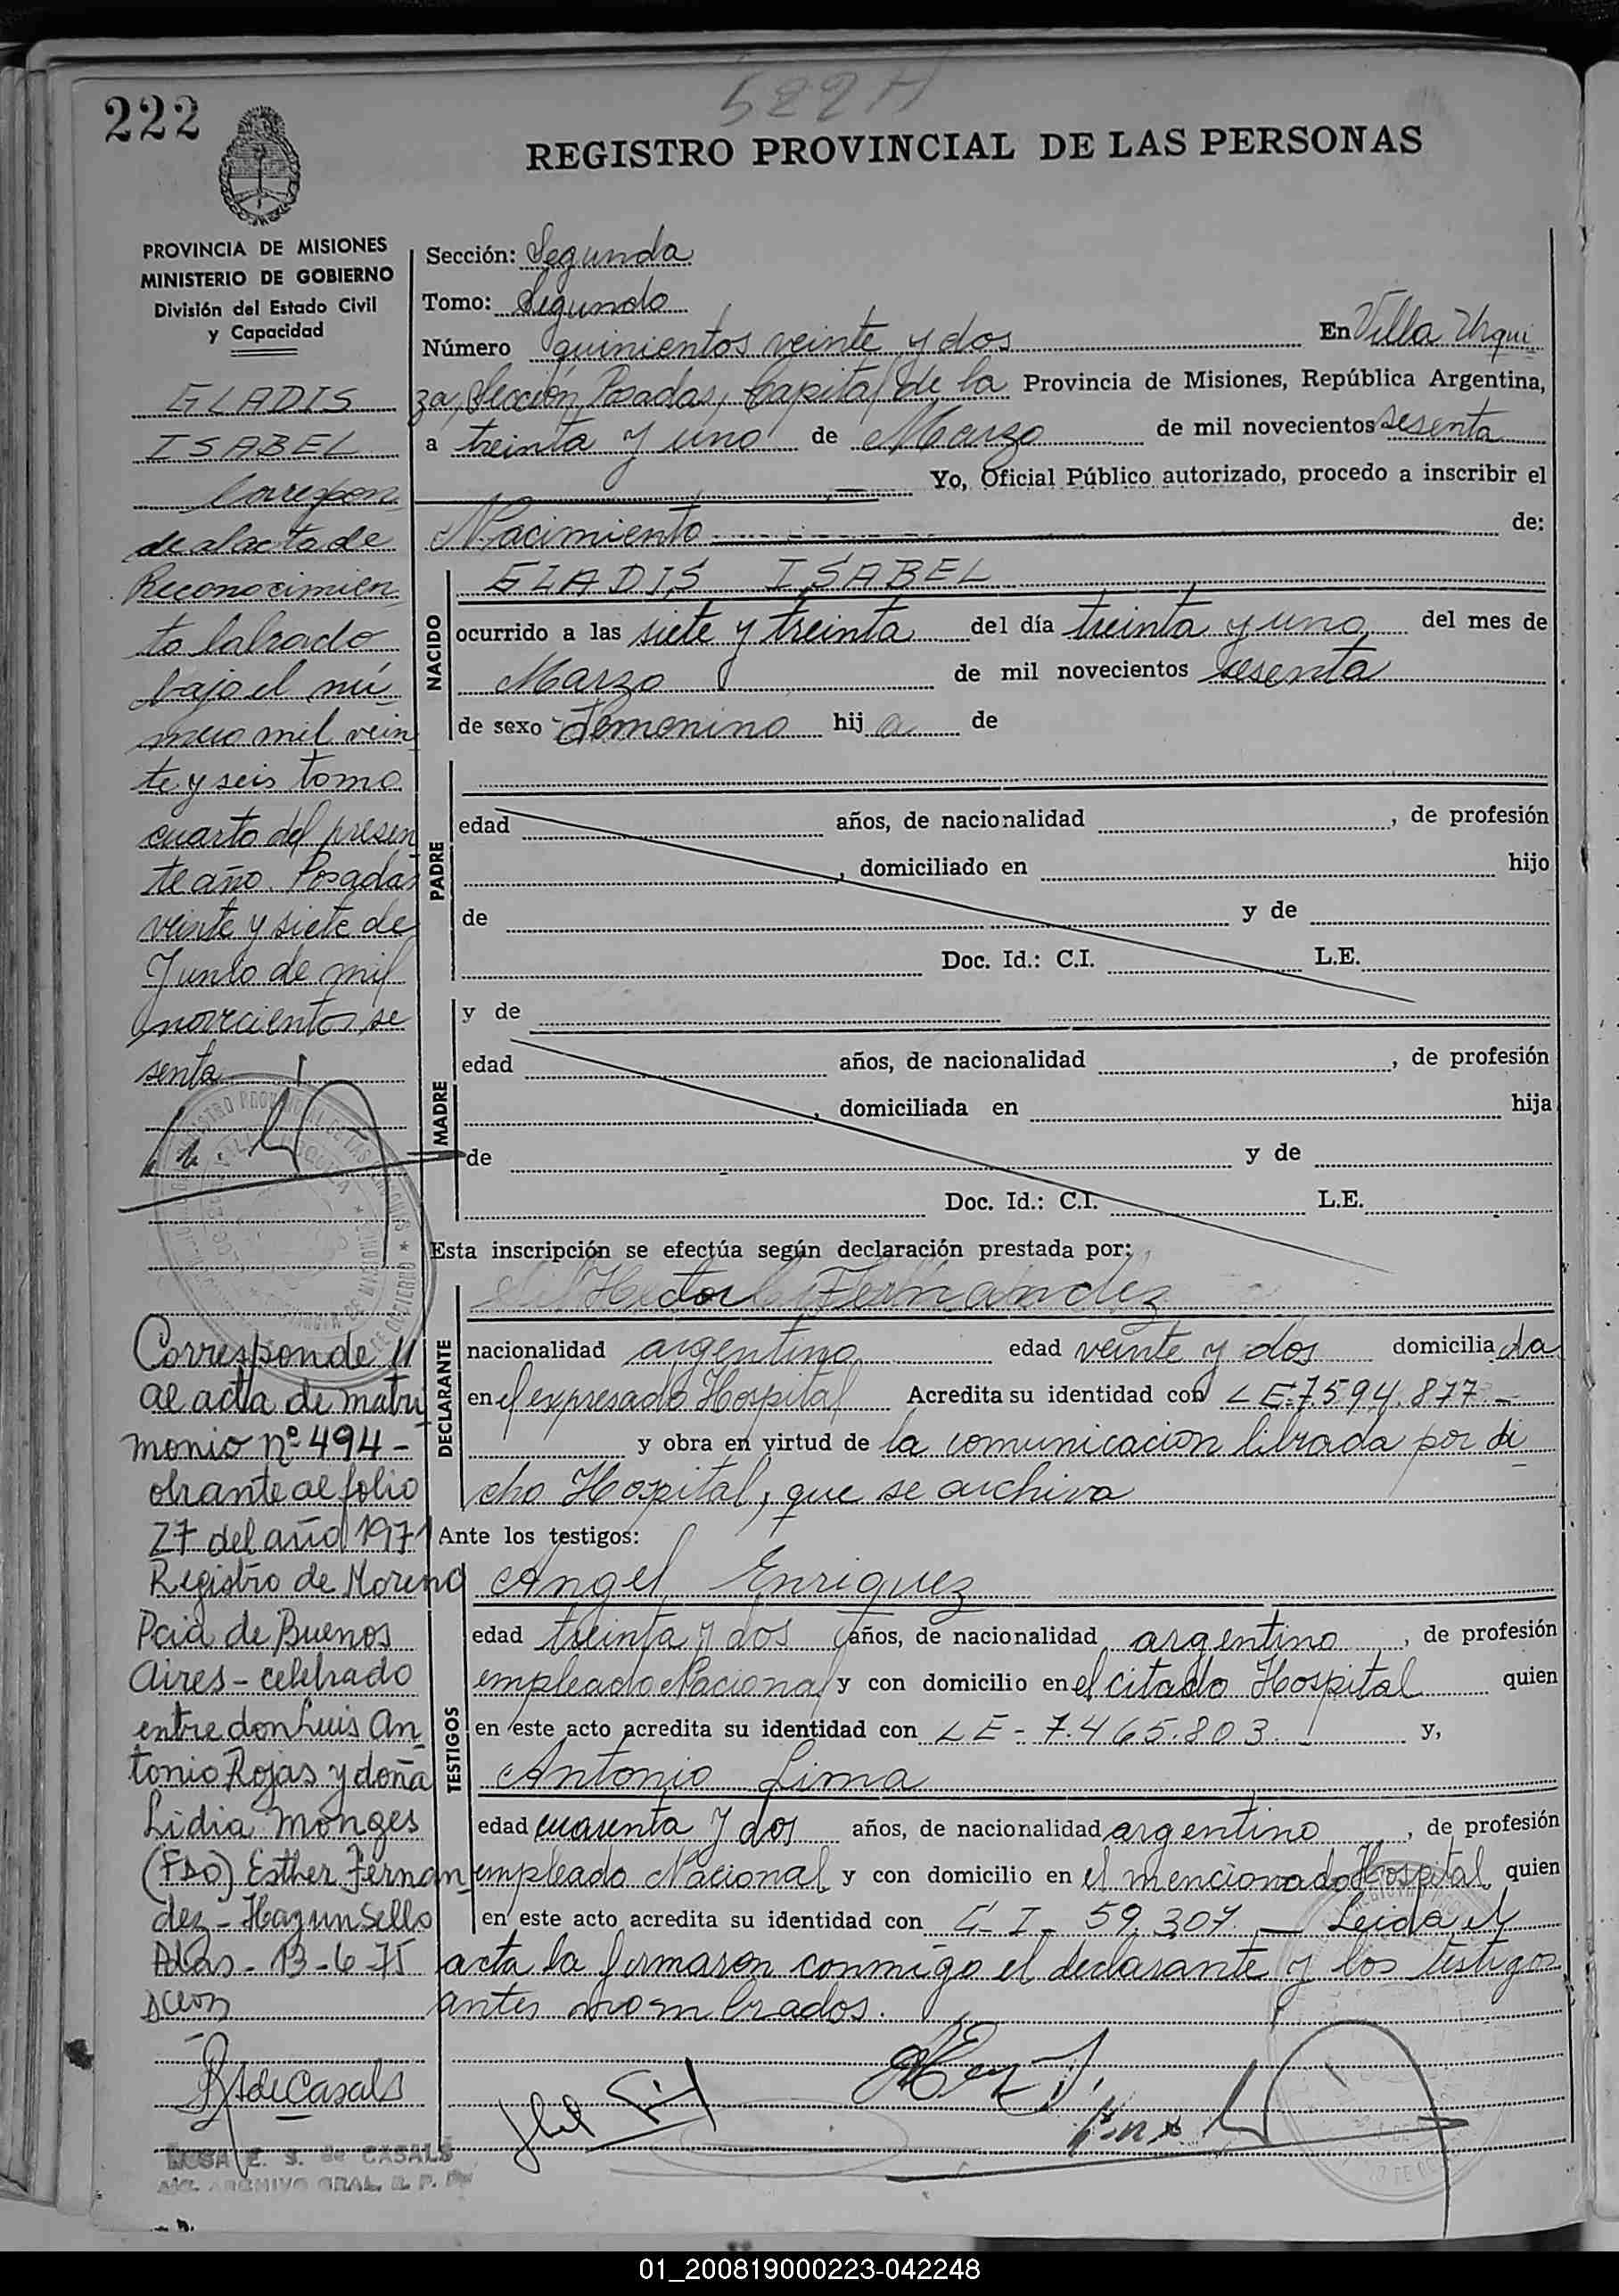 522 A
222
REGISTRO PROVINCIAL DE LAS PERSONAS
PROVINCIA DE MISIONES
MINISTERIO DE GOBIERNO
División del Estado Civil
y Capacidad
GLADIS
ISABEL
Correspon
de al acta de
Reconocimien
to labrado
bajo el nú-
mero mil vein
te y seis tomo
cuarto del presen
te año. Posadas
veinte y siete de
Junio de mil
novecientos se
senta
Corresponde
al acta de matri
monio nº 494 -
obrante al folio
27 del año 1971
Registro de Moreno
Pcia de Buenos
Aires - celebrado
entre don Luis An
tonio Rojas y doña
Lidia Monges
(FDO) Esther Fernan
dez - Hay un Sello
Pdas - 13-6-75
RSdeCasals
ROSA E. S. de CASALS
ARCHIVO GRAL. R. P.
Sección: Segunda
Tomo: Segundo
Número quinientos veinte y dos En Villa Urqui
za, Sección Posadas, Capital de la Provincia de Misiones, República Argentina,
a treinta y uno de Marzo de mil novecientos sesenta
Yo, Oficial Público autorizado, procedo a inscribir el
Nacimiento de:
NACIDO
GLADIS ISABEL
ocurrido a las siete y treinta del día treinta y uno del mes de
Marzo de mil novecientos sesenta
de sexo Femenino hij a de
PADRE
edad años, de nacionalidad , de profesión
, domiciliado en hijo
de y de
Doc. Id.: C.I. L.E.
MADRE
y de
edad años, de nacionalidad , de profesión
, domiciliada en hija
de y de
Doc. Id.: C.I. L.E.
Esta inscripción se efectúa según declaración prestada por:
DECLARANTE
Hector Fernandez
nacionalidad argentino edad veinte y dos domicilia da
en el expresado Hospital Acredita su identidad con L E. 7.594.877.-
y obra en virtud de la comunicacion librada por di
cho Hospital, que se archiva
Ante los testigos:
TESTIGOS
Angel Enriquez
edad treinta y dos años, de nacionalidad argentino , de profesión
empleado Nacional y con domicilio en el citado Hospital quien
en este acto acredita su identidad con L E - 7.465.803. y,
Antonio Lima
edad cuarenta y dos años, de nacionalidad argentino , de profesión
empleado Nacional y con domicilio en el mencionado Hospital quien
en este acto acredita su identidad con C- I - 59.307. — Leida el
acta la firmaron conmigo el declarante y los testigos
antes nombrados.
01_200819000223-042248